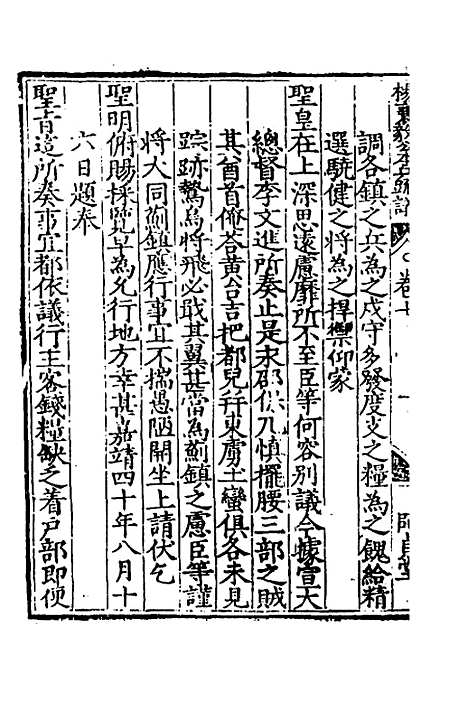 楊襄毅公本兵疏議 卷七
調各鎮之兵為之戍守多發度支之糧為之餽給精
選驍健之將為之捍禦仰蒙
聖皇在上深思遠慮靡所不至臣等何容別議今據宣大
總督李文進所奏止是求郤供刀慎擺腰三部之賊
其酋首俺荅黃台吉把都兒并東虜土蠻俱各未見
踪跡鷙鳥將飛必戢其翼甚當為薊鎮之慮臣等謹
將大同薊鎮應行事宜不揣愚陋開坐上請伏乞
聖明俯賜採覽早為允行地方幸甚嘉靖四十年八月十
六日題奉
聖旨這所奏事宜都依議行主客錢糧缺乏着戶部即便